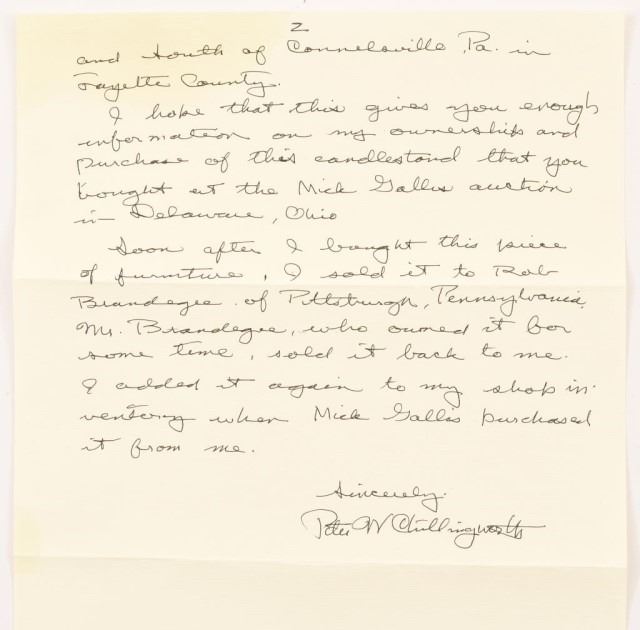 2
and south of Connelsville, Pa. in
Fayette County.
I hope that this gives you enough
information on my ownership and
purchase of this candlestand that you
bought at the Mick Gallis auction
in Delaware, Ohio
Soon after I bought this piece
of furniture, I sold it to Rob
Brandegee of Pittsburgh, Pennsylvania.
Mr. Brandegee, who owned it for
some time, sold it back to me.
I added it again to my shop in-
ventory when Mick Gallis purchased
it from me.
Sincerely.
Peter W Chillingworth